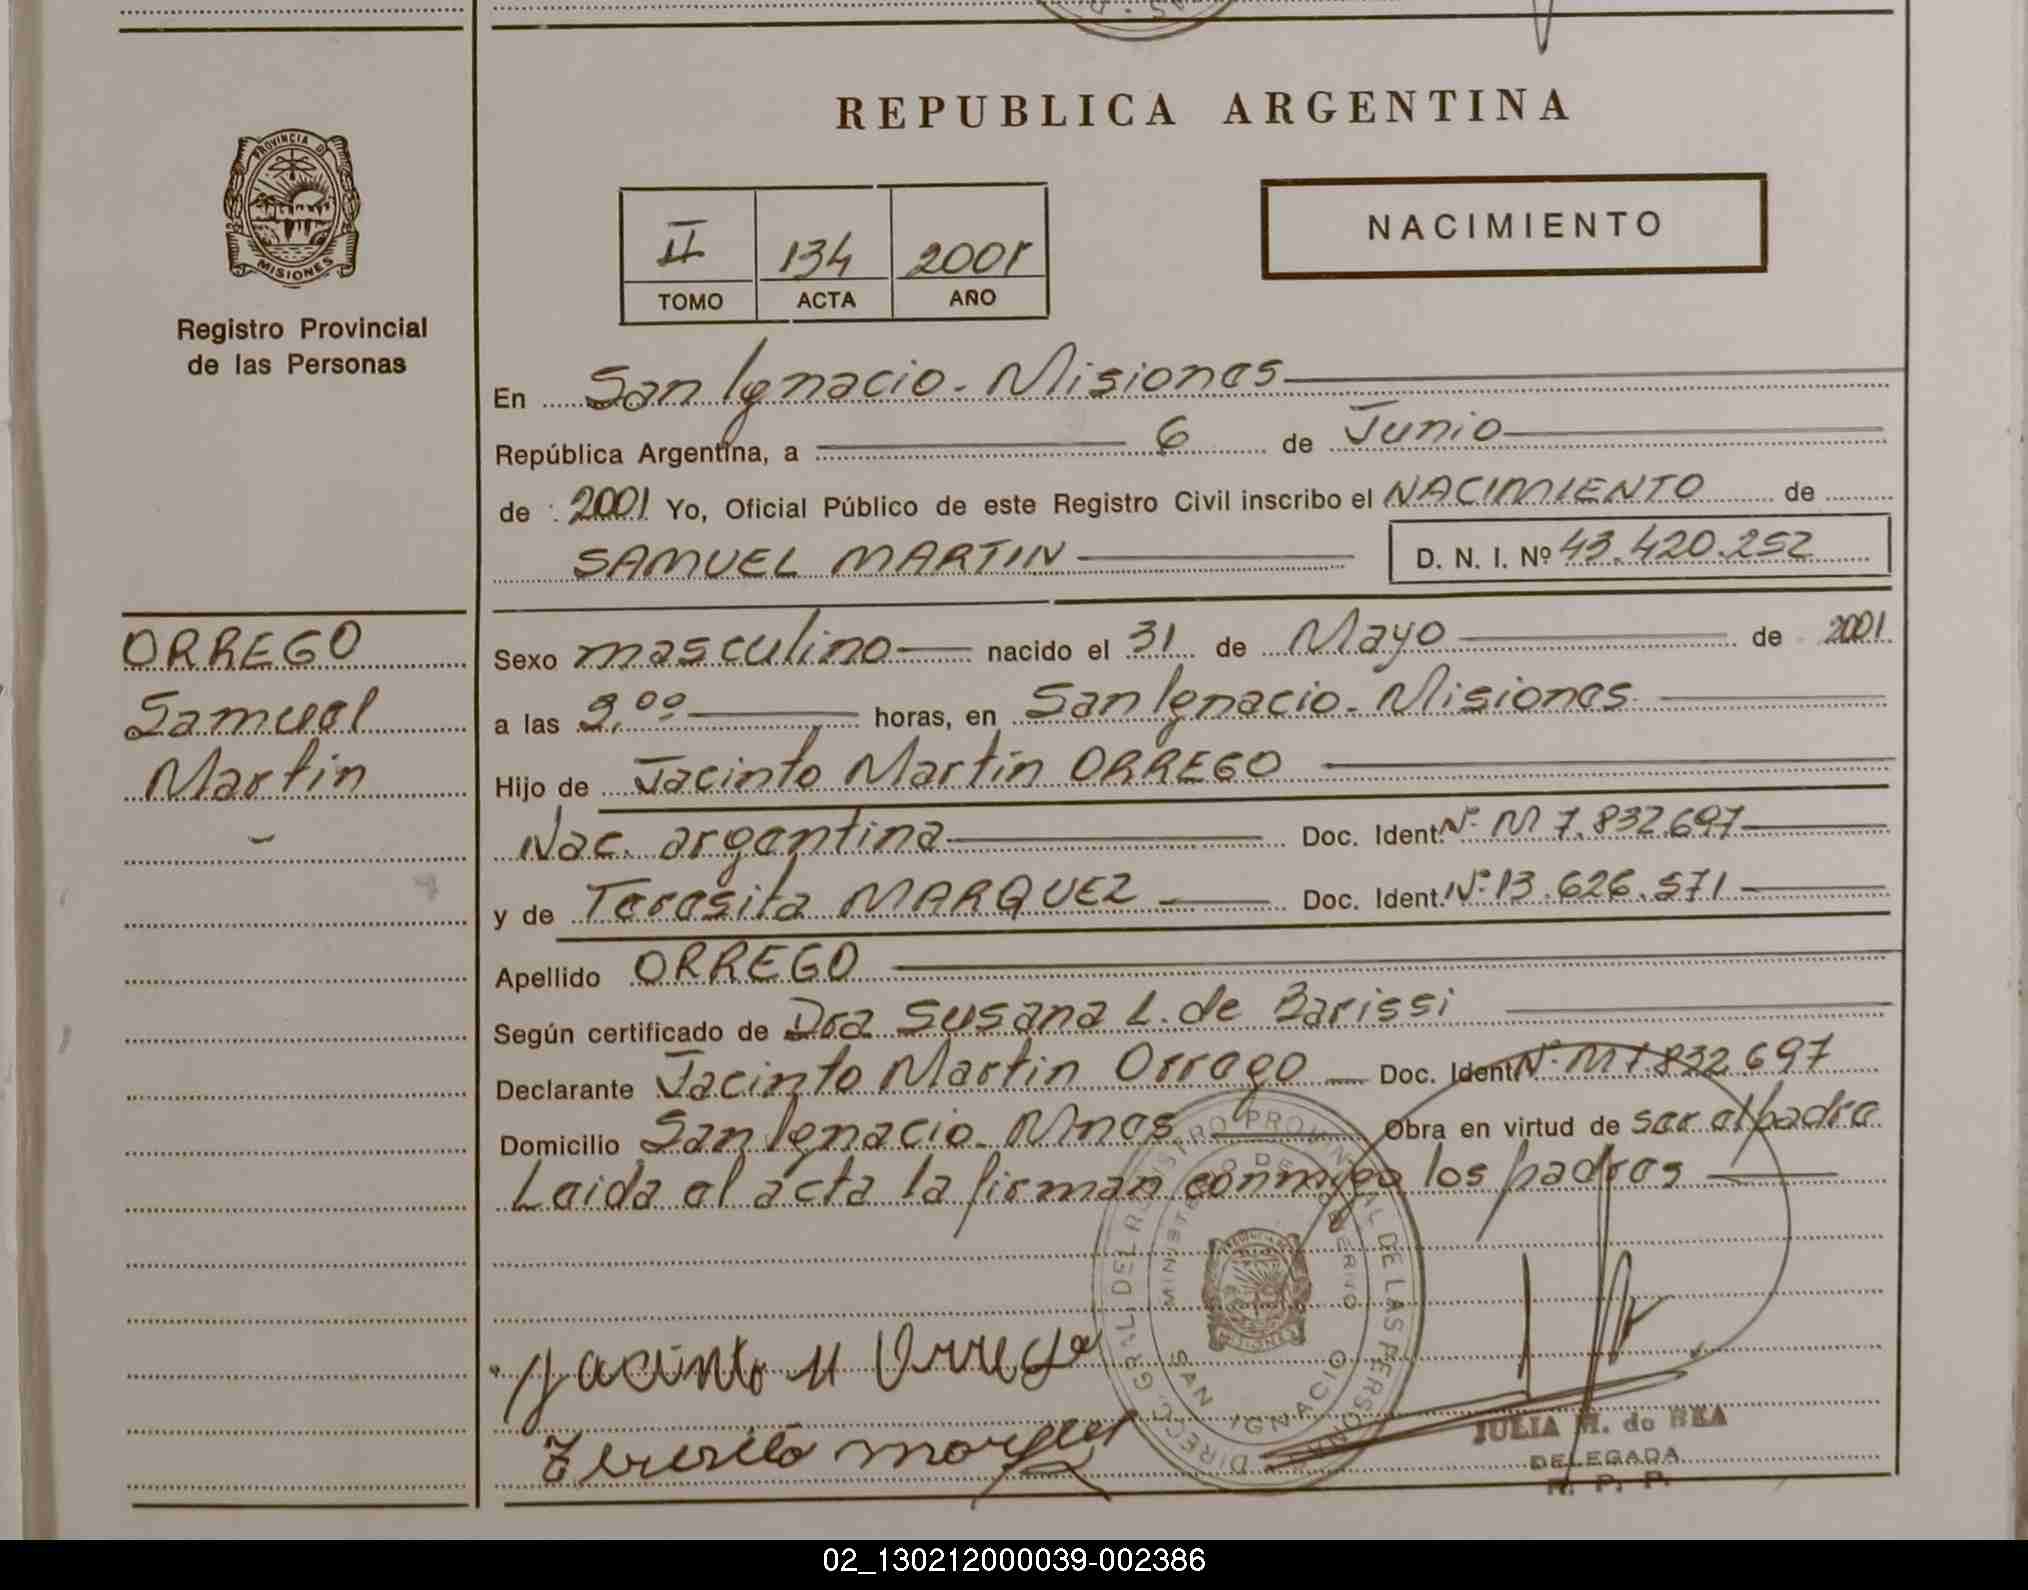 REPUBLICA ARGENTINA
PROVINCIA DE
MISIONES
Registro Provincial
de las Personas
II 134 2001
TOMO ACTA AÑO
NACIMIENTO
En San Ignacio - Misiones
República Argentina, a 6 de Junio
de 2001 Yo, Oficial Público de este Registro Civil inscribo el NACIMIENTO de
SAMUEL MARTIN D. N. I. Nº 43.420.252
ORREGO
Samuel
Martin
Sexo masculino nacido el 31 de Mayo de 2001
a las horas, en San Ignacio - Misiones
Hijo de Jacinto Martin ORREGO
Nac. argentina Doc. Ident. Nº M 7.832.697
y de Teresita MARQUEZ Doc. Ident. Nº 13.626.571
Apellido ORREGO
Según certificado de Dra Susana L. de Barissi
Declarante Jacinto Martin Orrego Doc. Ident. Nº M 7.832.697
Domicilio San Ignacio - Mnes Obra en virtud de ser el padre
Leida el acta la firman conmigo los padres
Jacinto M Orrego
Teresita Marquez
DIRECC. GRAL. DEL REGISTRO PROVINCIAL DE LAS PERSONAS
MINISTERIO DE GOBIERNO
SAN IGNACIO
JULIA M. de REA
DELEGADA
R. P. P.
02_130212000039-002386